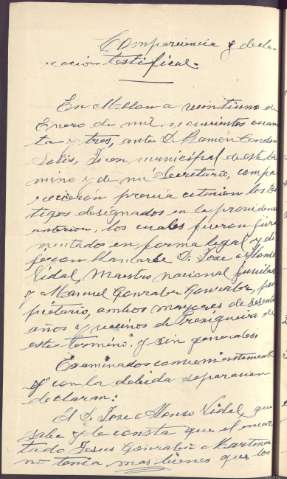 Comparecencia y decla-
ración testifical.
En Mellana a veintiuno de
Enero de mil novecientos cuaren
ta y tres, ante D. Ramón
Solís, Juez municipal de este tér
mino y de mi Secretario, compa
recieron previa citación los tes
tigos designados en la providencia
anterior, los cuales fueron jura
mentados en forma legal y di
jeron llamarse D. José Alonso
Vidal, Maestro nacional jubilado
y Manuel González González, pro
pietario, ambos mayores de sesenta
años y vecinos de
este término, y sin generales
Examinados convenientemente
y con la debida separación
declaran:
El D. José Alonso Vidal, que
sabe y le consta que el encar
tado Jesús González Martínez
no tenía mas bienes que los